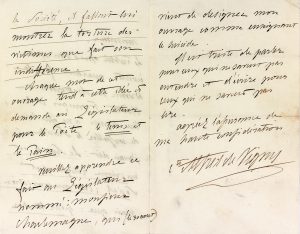 la Société, il fallait lui
montrer la torture des
victimes que fait son
indifférence.
Chaque mot de cet
ouvrage tend à cette idée et
demande au Législateur
pour le Poète le temps et
le Pain.
Veuillez apprendre ce
fait au Législateur
nommé : monsieur
Charlemagne, qui
vient de désigner mon
ouvrage comme enseignant
le suicide.
Il est triste de parler
pour ceux qui ne savent pas
entendre et d'écrire pour
ceux qui ne savent pas
lire.
agréez l'assurance de
ma haute considération
Alfred de Vigny